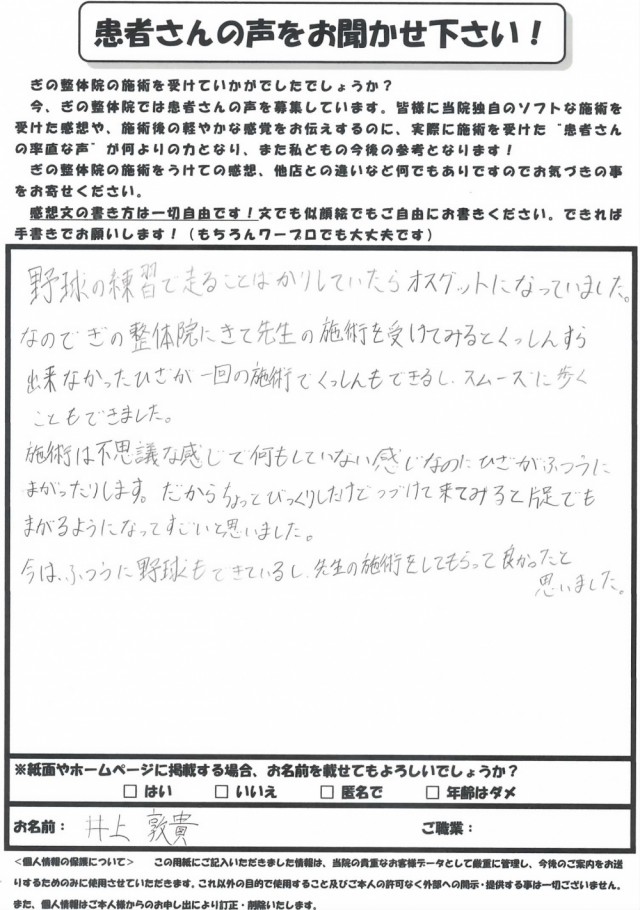 患者さんの声をお聞かせ下さい！
ぎの整体院の施術を受けていかがでしたでしょうか？
今、ぎの整体院では患者さんの声を募集しています。皆様に当院独自のソフトな施術を
受けた感想や、施術後の軽やかな感覚をお伝えするのに、実際に施術を受けた“患者さん
の率直な声”が何よりの力となり、また私どもの今後の参考となります！
ぎの整体院の施術をうけての感想、他店との違いなど何でもありですのでお気づきの事
をお寄せください。
感想文の書き方は一切自由です！文でも似顔絵でもご自由にお書きください。できれば
手書きでお願いします！（もちろんワープロでも大丈夫です）
野球の練習で走ることばかりしていたらオスグットになっていました。
なのでぎの整体院にきて先生の施術を受けてみるとくっしんすら
出来なかったひざが一回の施術でくっしんもできるし、スムーズに歩く
こともできました。
施術は不思議な感じで何もしていない感じなのにひざがふつうに
まがったりします。だからちょっとびっくりしたけどつづけて来てみると片足でも
まがるようになってすごいと思いました。
今は、ふつうに野球もできているし、先生の施術をしてもらって良かったと
思いました。
※紙面やホームページに掲載する場合、お名前を載せてもよろしいでしょうか？
□ はい □ いいえ □ 匿名で □ 年齢はダメ
お名前： 井上 敦貴 ご職業：
＜個人情報の保護について＞ この用紙にご記入いただきました情報は、当院の貴重なお客様データとして厳重に管理し、今後のご案内をお送
りするためのみに使用させていただきます。これ以外の目的で使用すること及びご本人の許可なく外部への開示・提供する事は一切ございません。
また、個人情報はご本人様からのお申し出により訂正・削除いたします。